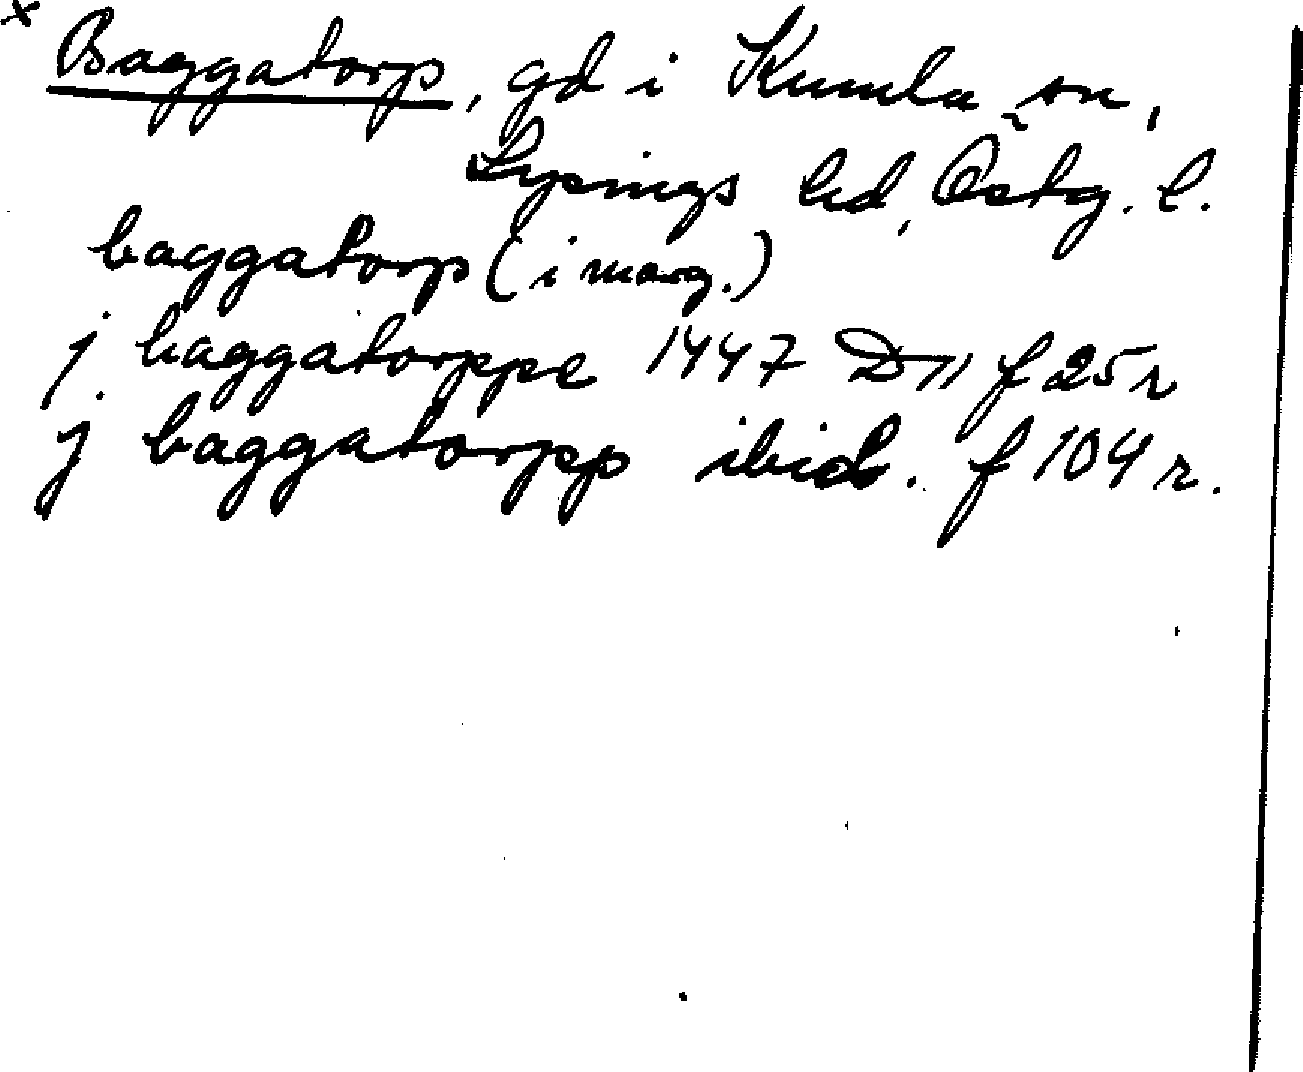 x Baggatorp, gd i Kumla sn,
Lysings hd, Östg. l.
baggatorp (i marg.)
j baggatorppe 1447 D 11 f 25 r
j baggatorpp ibid. f 104 r.